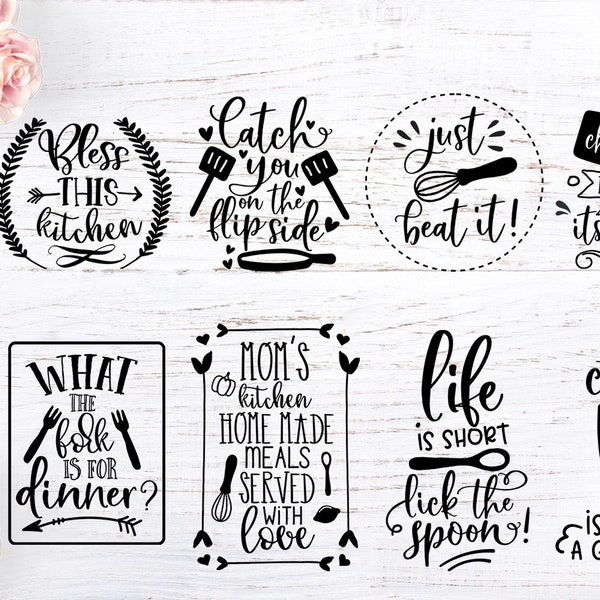 Bless
THIS
kitchen
Catch
you
on the
flip side
just
beat it!
WHAT
THE
fork
IS FOR
dinner?
MOM'S
kitchen
HOME MADE
MEALS
SERVED
WITH
love
life
IS SHORT
lick the
spoon!